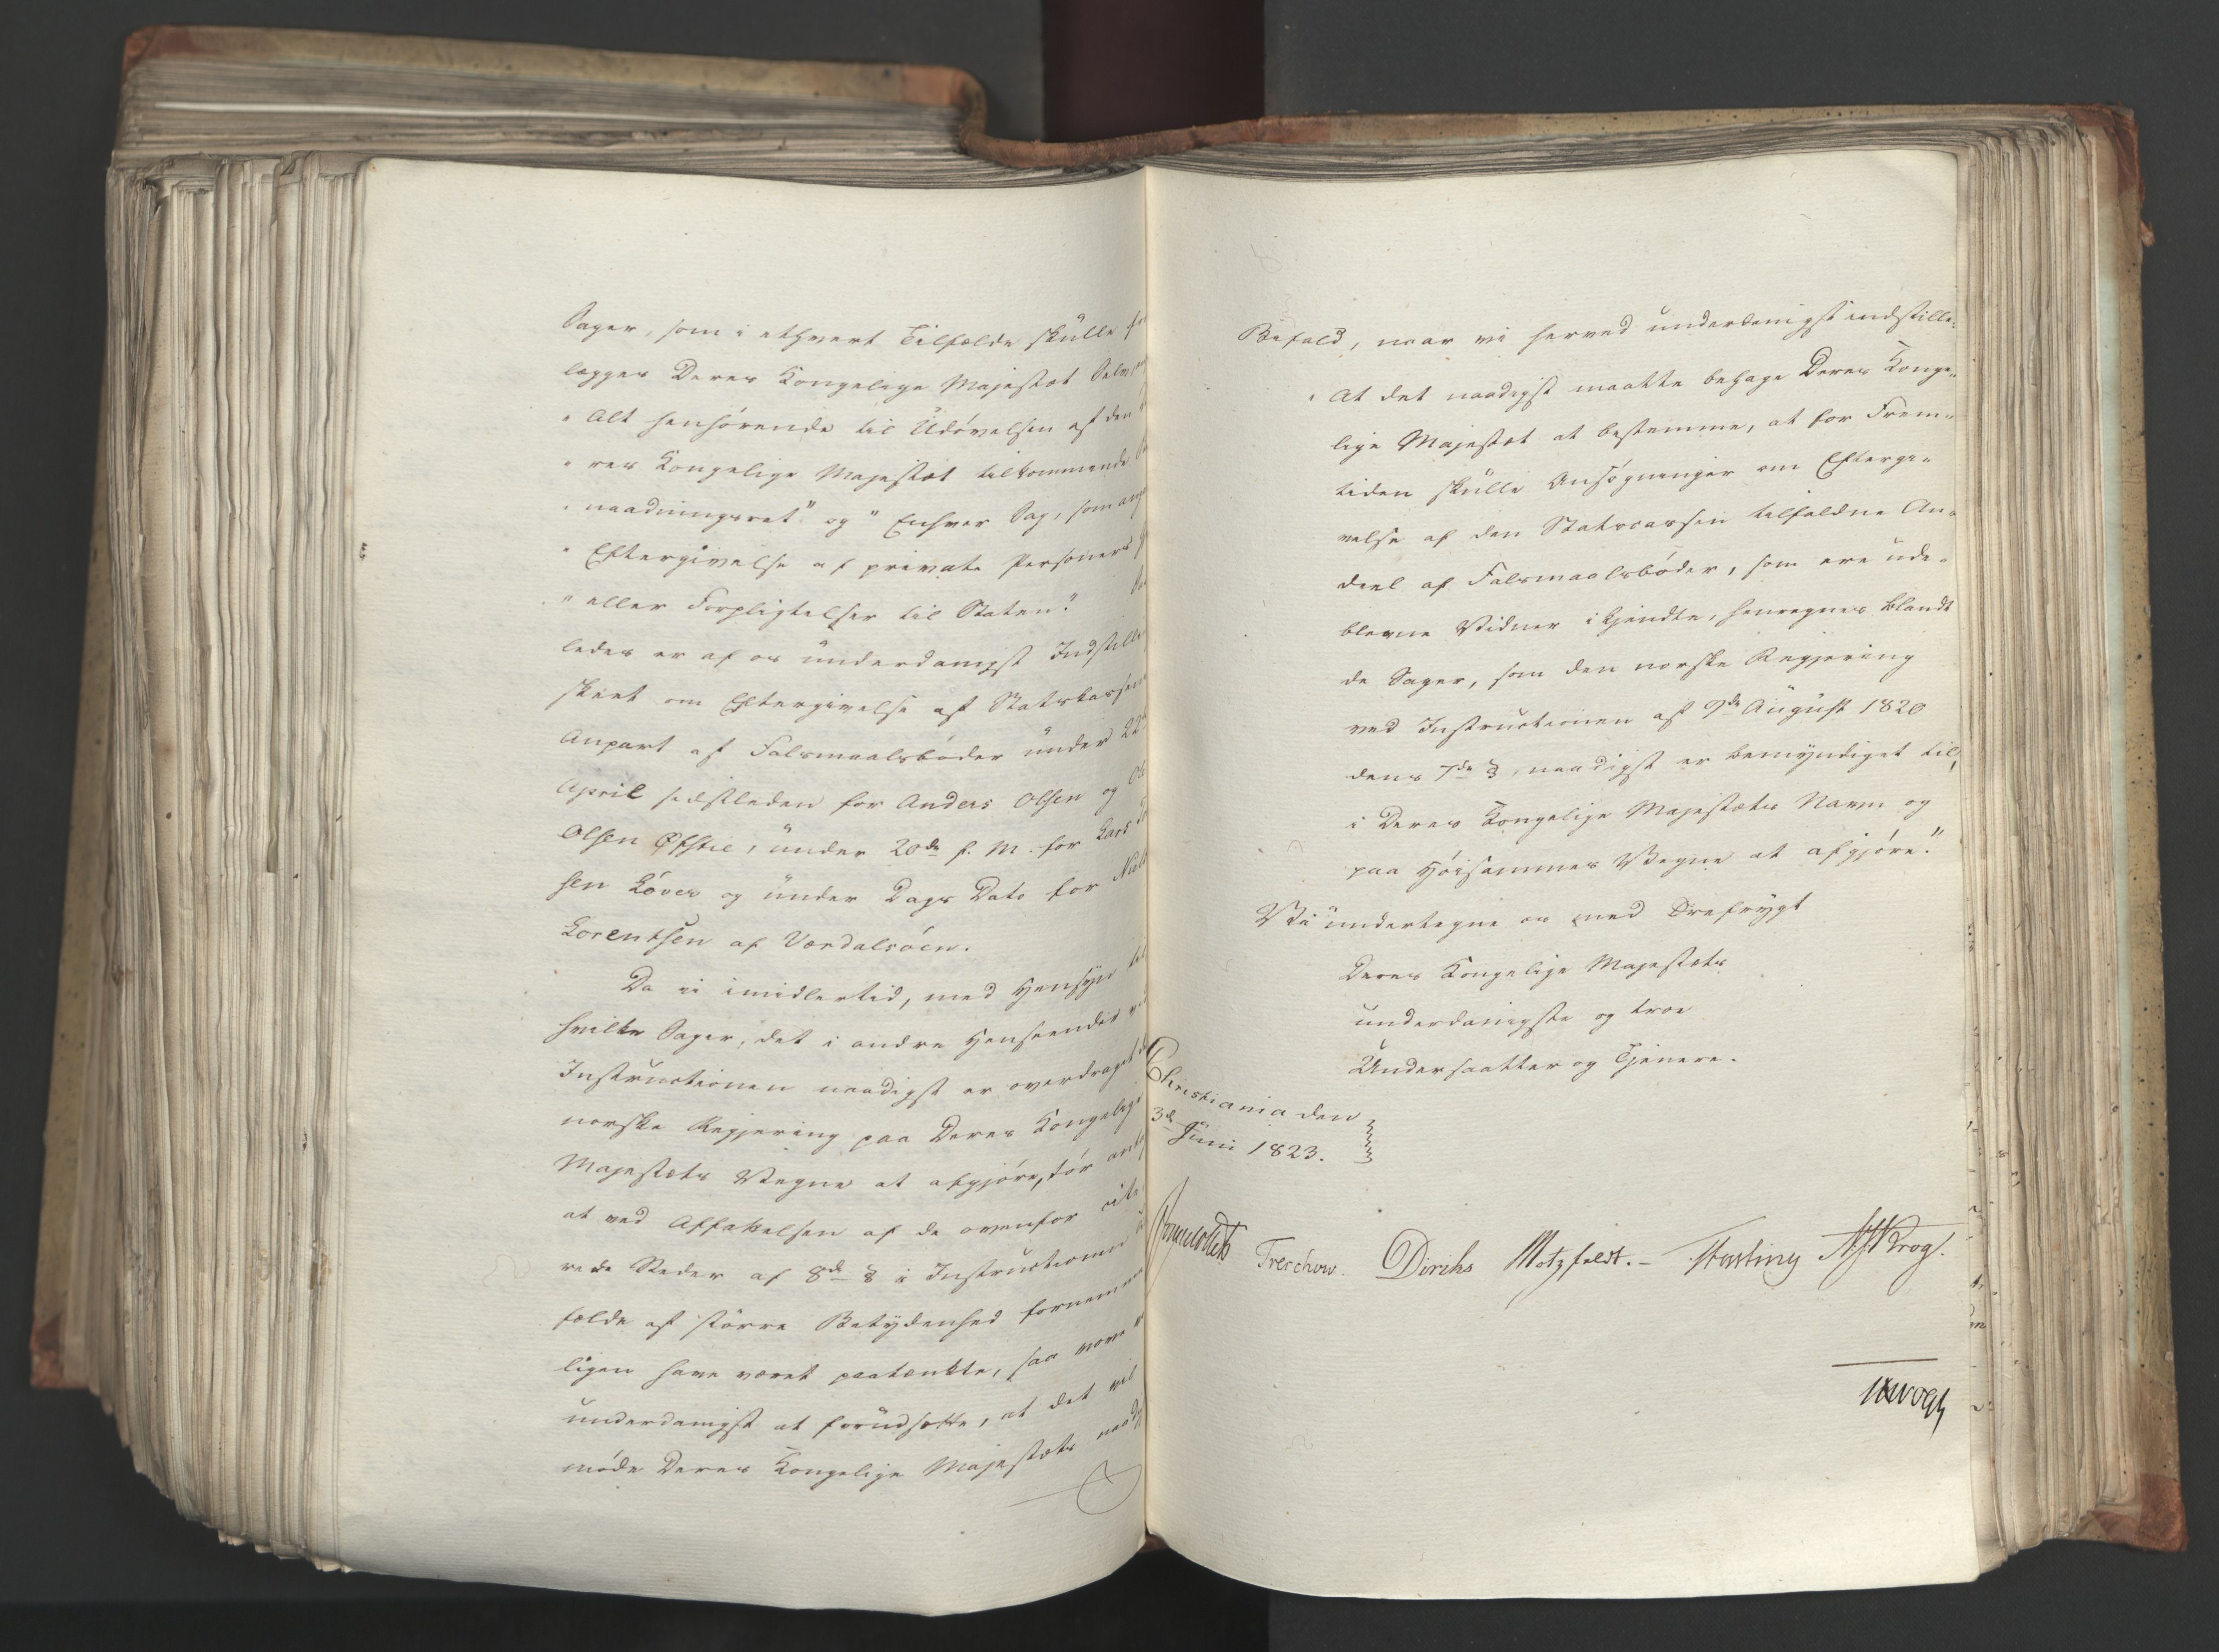 Sager, som i ethvert Tilfælde skulle
lægges Deres Kongelige Majestæt
"Alt henhørende til Udøvelsen af den
"res Kongelige Majestæt tilkommende
"naadningsret" og "Enhver Sag, som
"Eftergivelse af private Personers
"eller Forpligtelser til Staten."
ledes er af os underdanigst Indstille
skeet om Eftergivelse af Statskassens
Anpart af Falsmaalsbøder under 22
April sidstleden for Anders Olsen og
Olsen Øfstie, under 20de f. M. for Lars
sen Løver og under Dags Dato for Niels
Lorentsen af Værdalsøen.
Da vi imidlertid, med Hensyn til
hvilke Sager, det i andre Henseender
Instructionen naadigst er overdraget
norske Regjering paa Deres Kongelige
Majestæts Vegne at afgjøre, tør
at ved Affattelsen af de ovenfor cite
rede Steder af 8de § i Instructionen
fælde af større Betydenhed fornemme
ligen have været paatænkte, saa vove
underdanigst at forudsætte, at det vil
møde Deres Kongelige Majestæts naad
Bifald, naar vi herved underdanigst indstille:
"At det naadigst maatte behage Deres Konge-
lige Majestæt at bestemme, at for Frem-
tiden skulle Ansøgninger om Eftergi-
velse af den Statscassen tilfaldne An-
deel af Falsmaalsbøder, som ere ude-
blevne Vidner ikjendte, henregnes blandt
de Sager, som den norske Regjering
ved Instructionen af 9de August 1820
dens 7de §, naadigst er bemyndiget til,
i Deres Kongelige Majestæts Navn og
paa Høisammes Vegne at afgjøre."
Vi undertegne os med Ærefrygt
Deres Kongelige Majestæts
underdanigste og troe
Undersaatter og Tjenere.
Christiania den
3de Juni 1823.
Jonas Collett Treschow. Diriks Motzfeldt. Fasting Krog.
Vogt